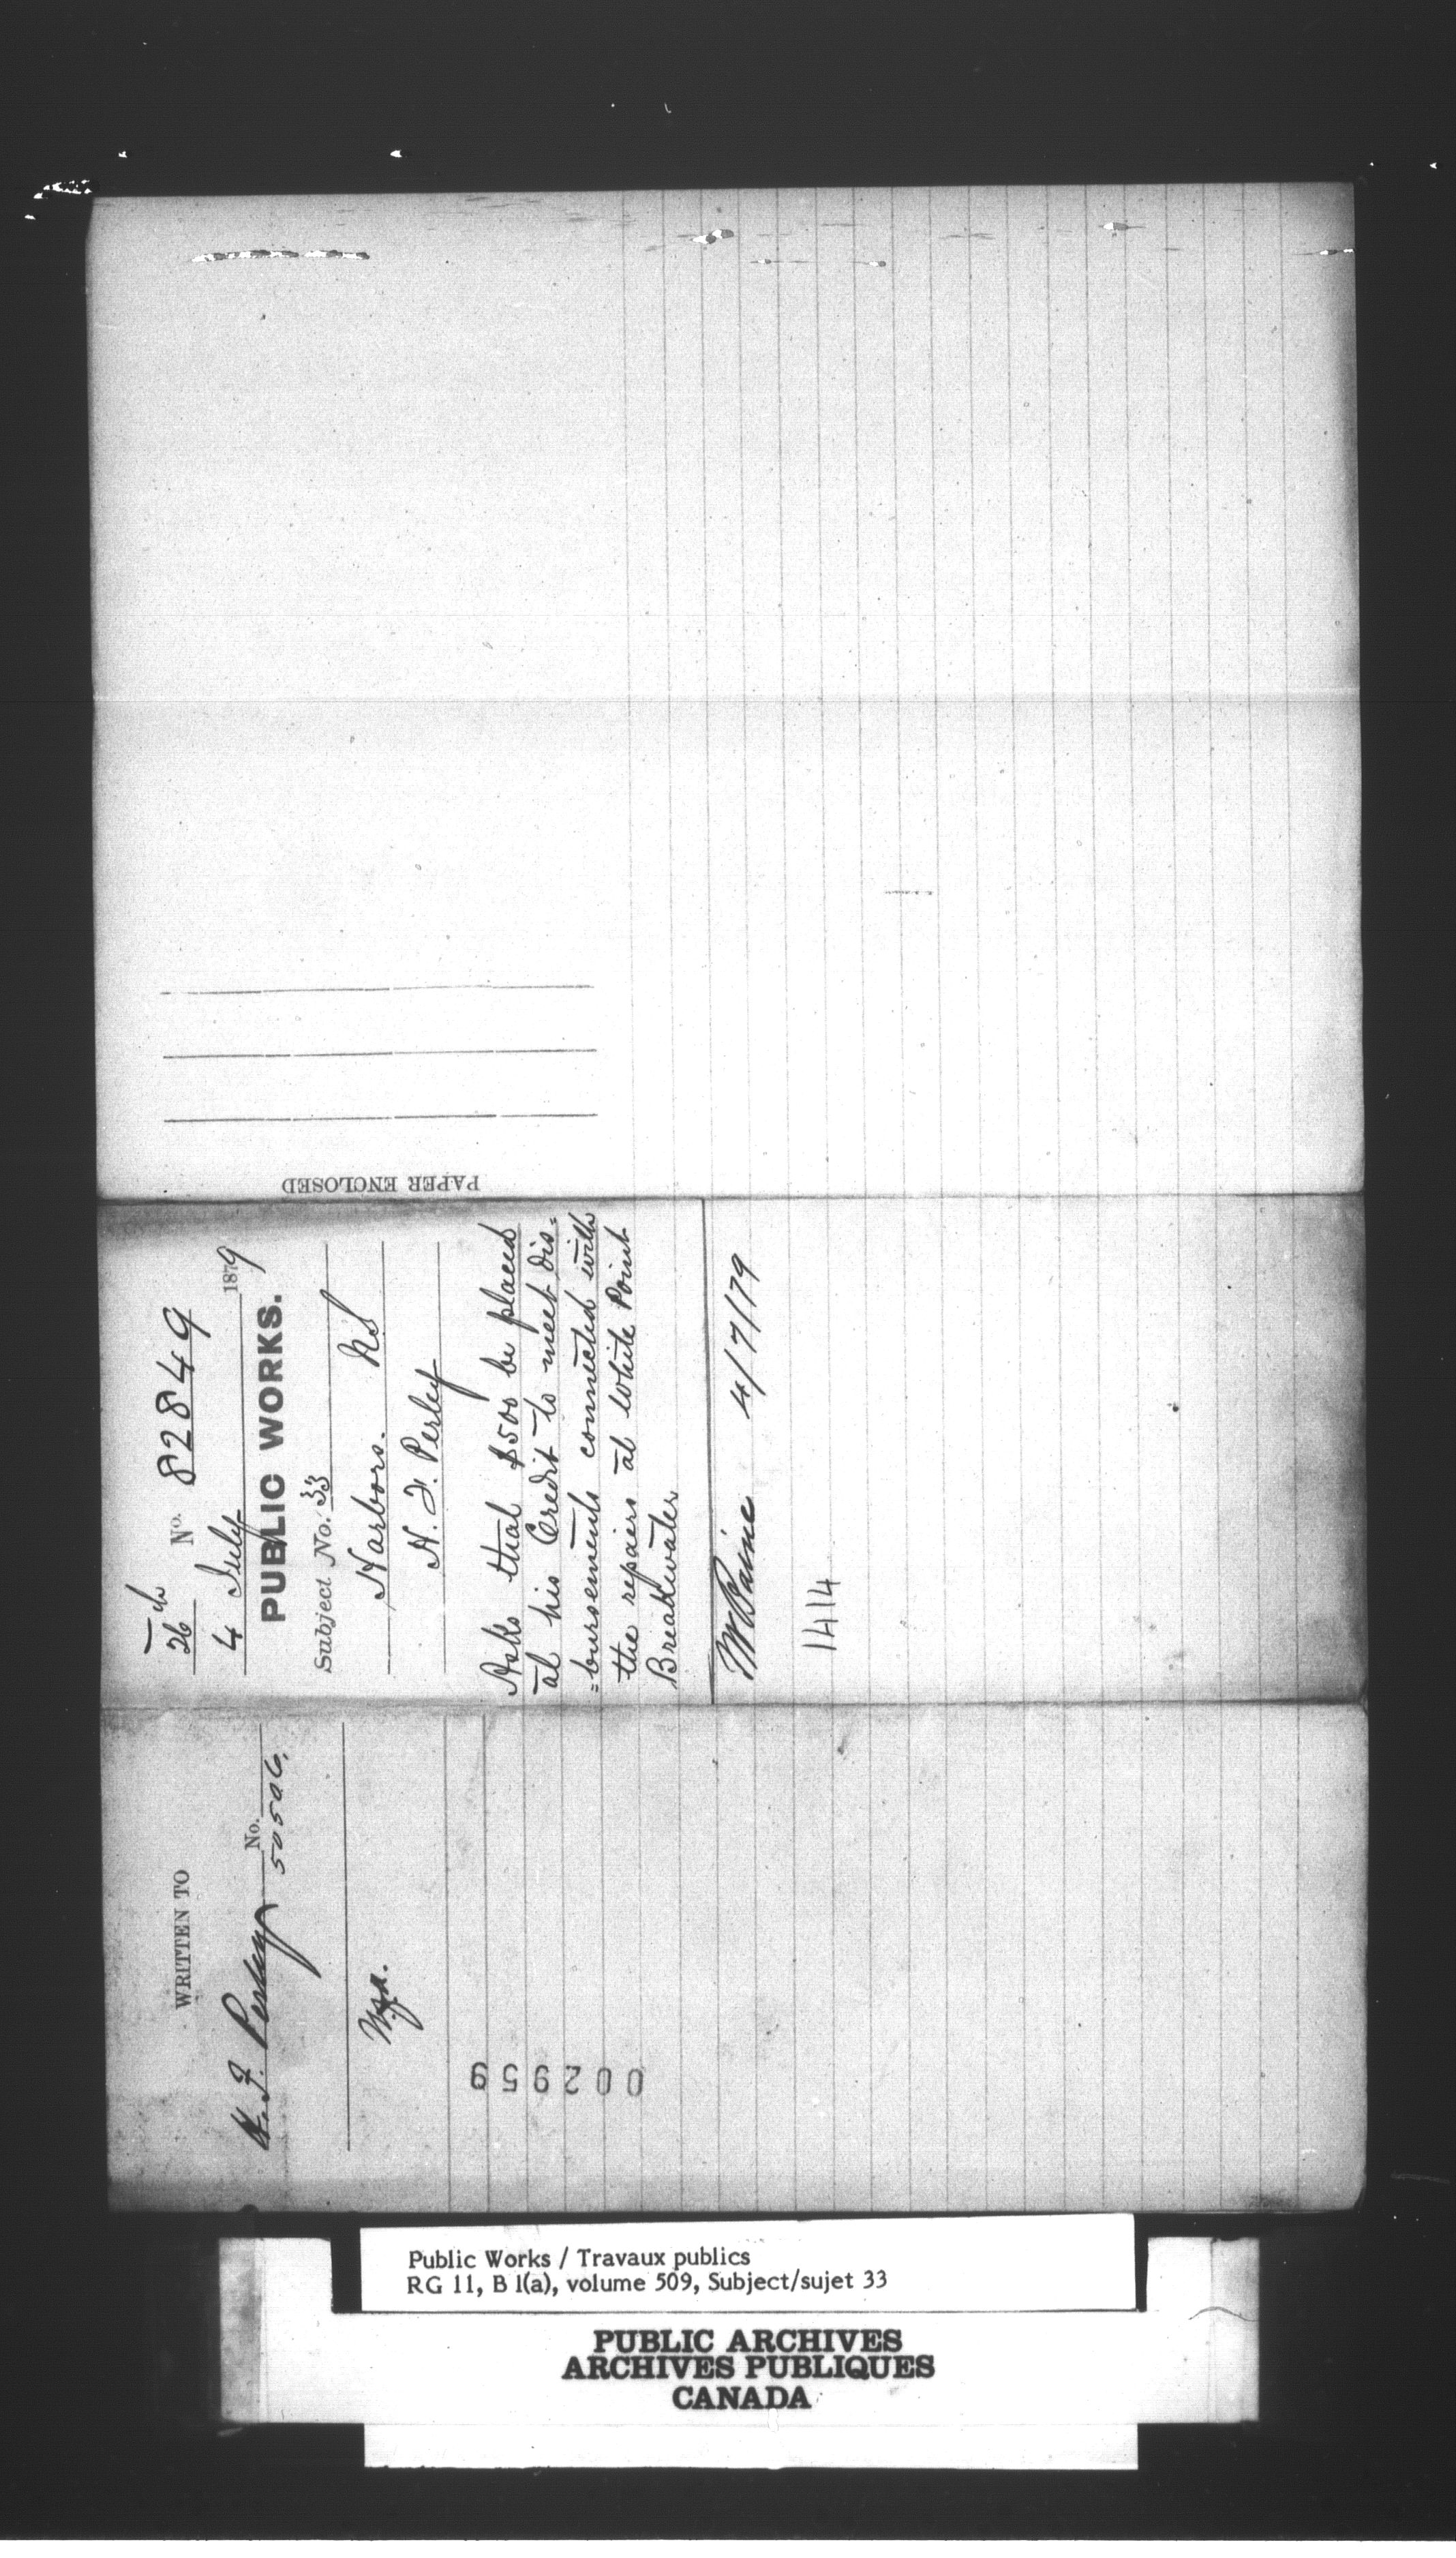 PAPER ENCLOSED
26th No. 82849
4 July 1879
PUBLIC WORKS.
Subject No. 33
Harbors. NS
H. F. Perley
Asks that $500 be placed
at his Credit to meet dis=
=bursements connected with
the repairs at White Point
Breakwater
4/7/79
1414
WRITTEN TO
No.
H. F. Perley 50506.
002959
Public Works / Travaux publics
RG 11, B 1(a), volume 509, Subject/sujet 33
PUBLIC ARCHIVES
ARCHIVES PUBLIQUES
CANADA